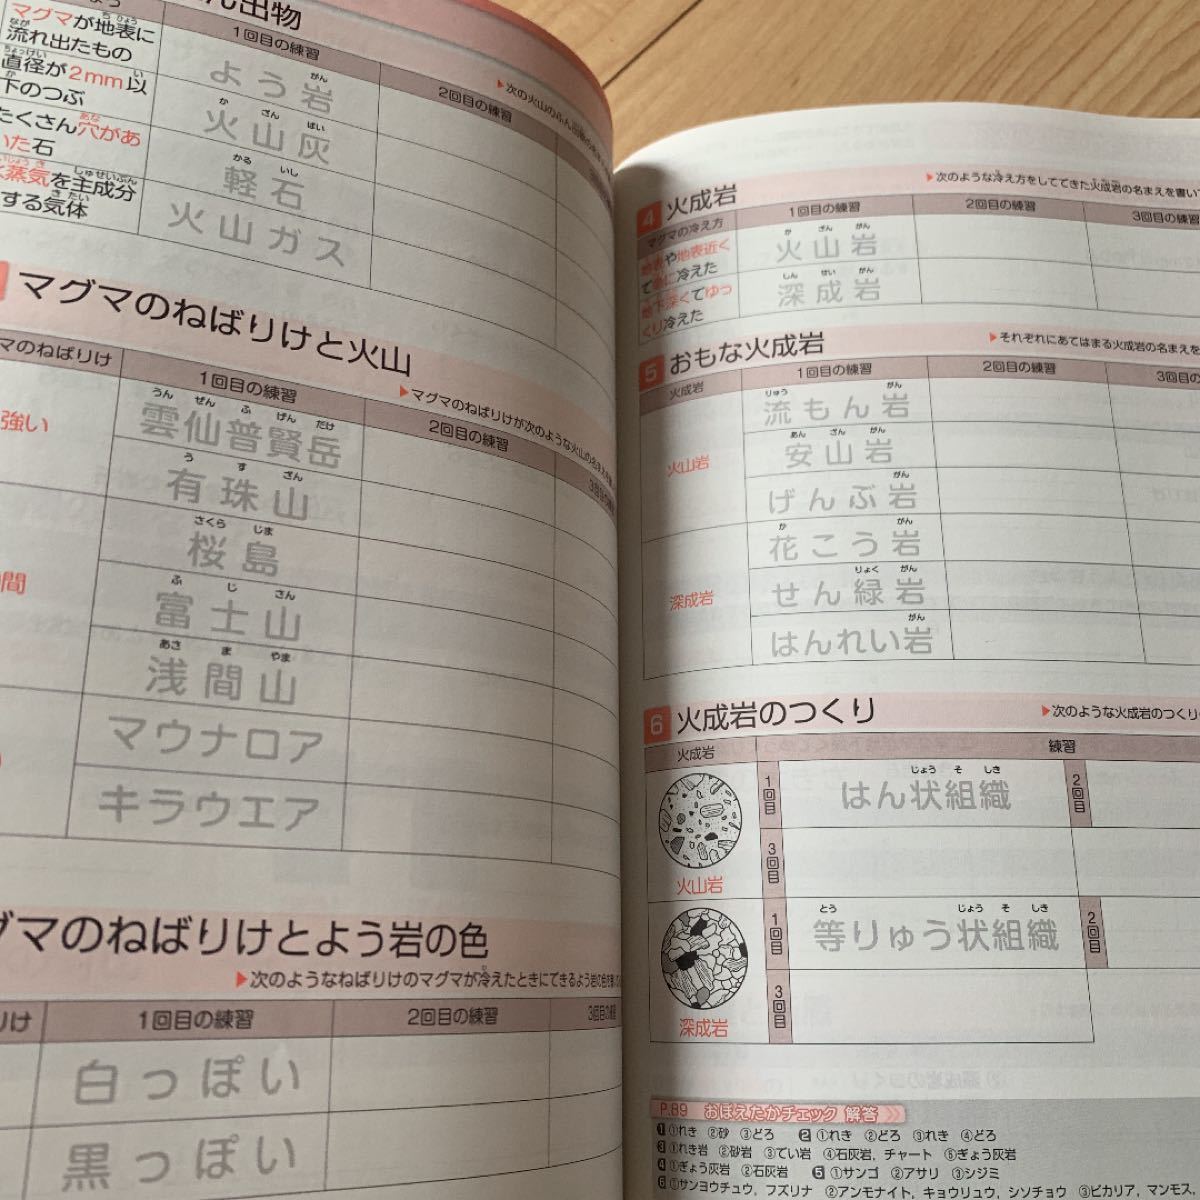 ん出物
1回目の練習
2回目の練習
▶次の火山の
マグマが地表に
流れ出たもの
よう岩
直径が2mm以
下のつぶ
火山灰
たくさん穴があ
いた石
軽石
蒸気を主成分
する気体
火山ガス
マグマのねばりけと火山
▶マグマのねばりけが次のような火山の名まえを
マのねばりけ
1回目の練習
2回目の練習
3回目の練習
強い
雲仙普賢岳
うん ぜん ふ げん だけ
有珠山
う す ざん
桜島
さくら じま
間
富士山
ふ じ さん
浅間山
あさ ま やま
マウナロア
キラウエア
グマのねばりけとよう岩の色
▶次のようなねばりけのマグマが冷えたときにできるよう岩の色を
りけ
1回目の練習
2回目の練習
3回目の練習
白っぽい
黒っぽい
4 火成岩
▶次のような冷え方をしてできた火成岩の名まえを書い
マグマの冷え方
1回目の練習
2回目の練習
3回目の練習
地表や地表近く
で急に冷えた
火山岩
か ざん がん
地下深くでゆっ
くり冷えた
深成岩
しん せい がん
5 おもな火成岩
▶それぞれにあてはまる火成岩の名まえを
火成岩
1回目の練習
2回目の練習
3回目の
火山岩
流もん岩
りゅう がん
安山岩
あん ざん がん
げんぶ岩
がん
深成岩
花こう岩
か がん
せん緑岩
りょく がん
はんれい岩
がん
6 火成岩のつくり
▶次のような火成岩のつくり
火成岩
練習
1回目
はん状組織
じょう そ しき
2回目
3回目
火山岩
1回目
等りゅう状組織
とう じょう そ しき
2回目
3回目
深成岩
P.89 おぼえたかチェック 解答
1 ①れき ②砂 ③どろ 2 ①れき ②どろ ③れき ④どろ
3 ①れき岩 ②砂岩 ③でい岩 ④石灰岩, チャート ⑤ぎょう灰岩
4 ①ぎょう灰岩 ②石灰岩 5 ①サンゴ ②アサリ ③シジミ
6 ①サンヨウチュウ, フズリナ ②アンモナイト, キョウリュウ, シソチョウ ③ビカリア, マンモス,